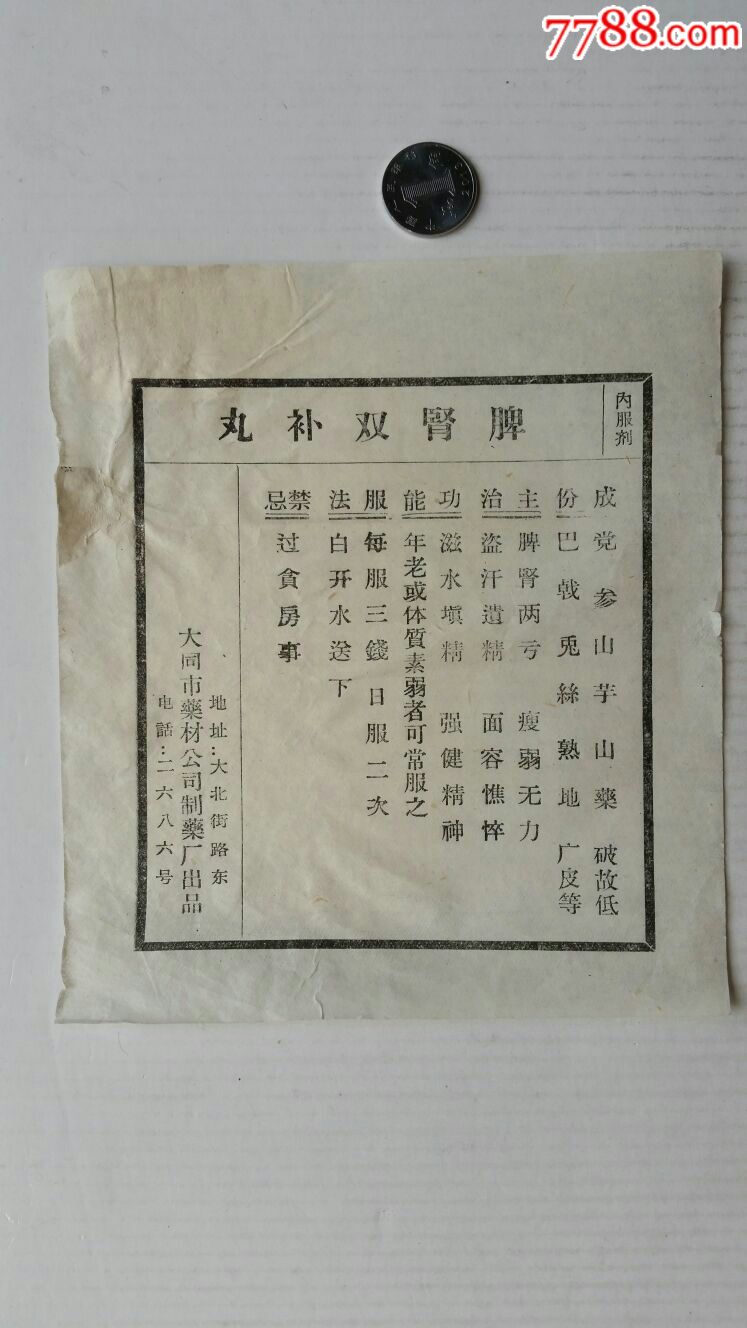 7788.com
内服剂
脾腎双补丸
成份
党参 山芋 山藥 破故低
巴戟 兎絲 熟地 广皮等
主治
脾腎两亏 瘦弱无力
盗汗遺精 面容憔悴
功能
滋水塡精 强健精神
年老或体質素弱者可常服之
服法
每服三錢日服二次
白开水送下
禁忌
过貪房事
地址:大北街路东
大同市藥材公司制藥厂出品
电話:二六八六号